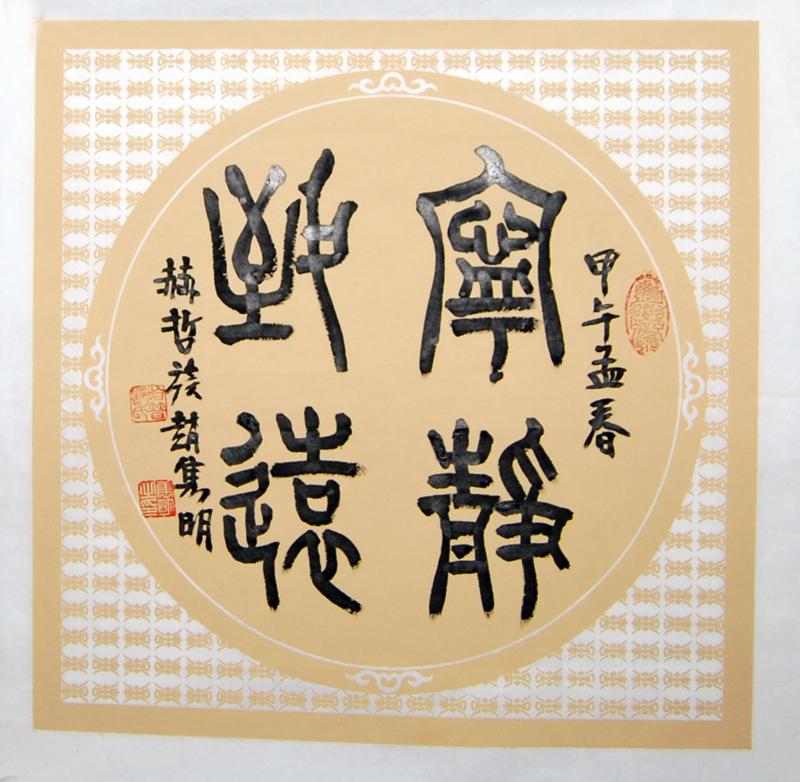 甲午孟春
寧靜
致遠
赫哲族趙集明